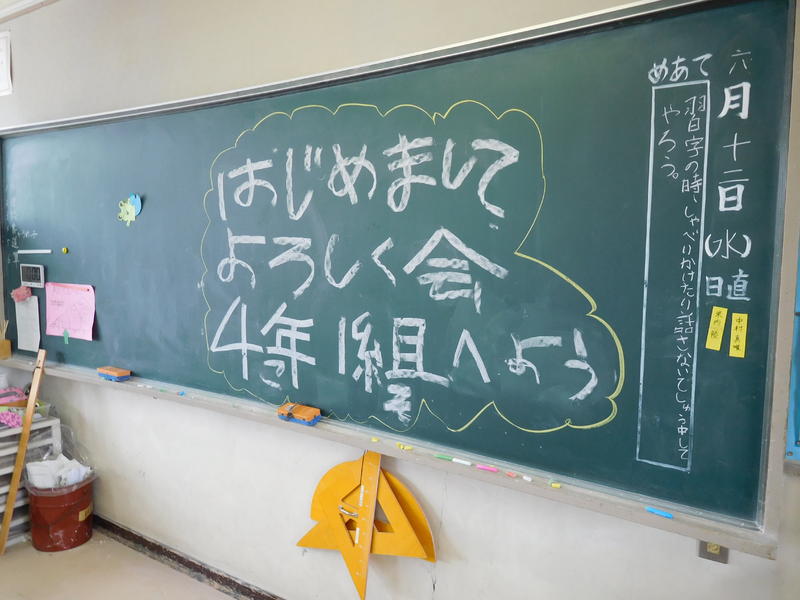 はじめまして
よろしく会
4年1組へようこそ
六月十二日(水)
日直
中村
めあて
習字の時、しゃべりかけたり話さないでしゅう中して
やろう。